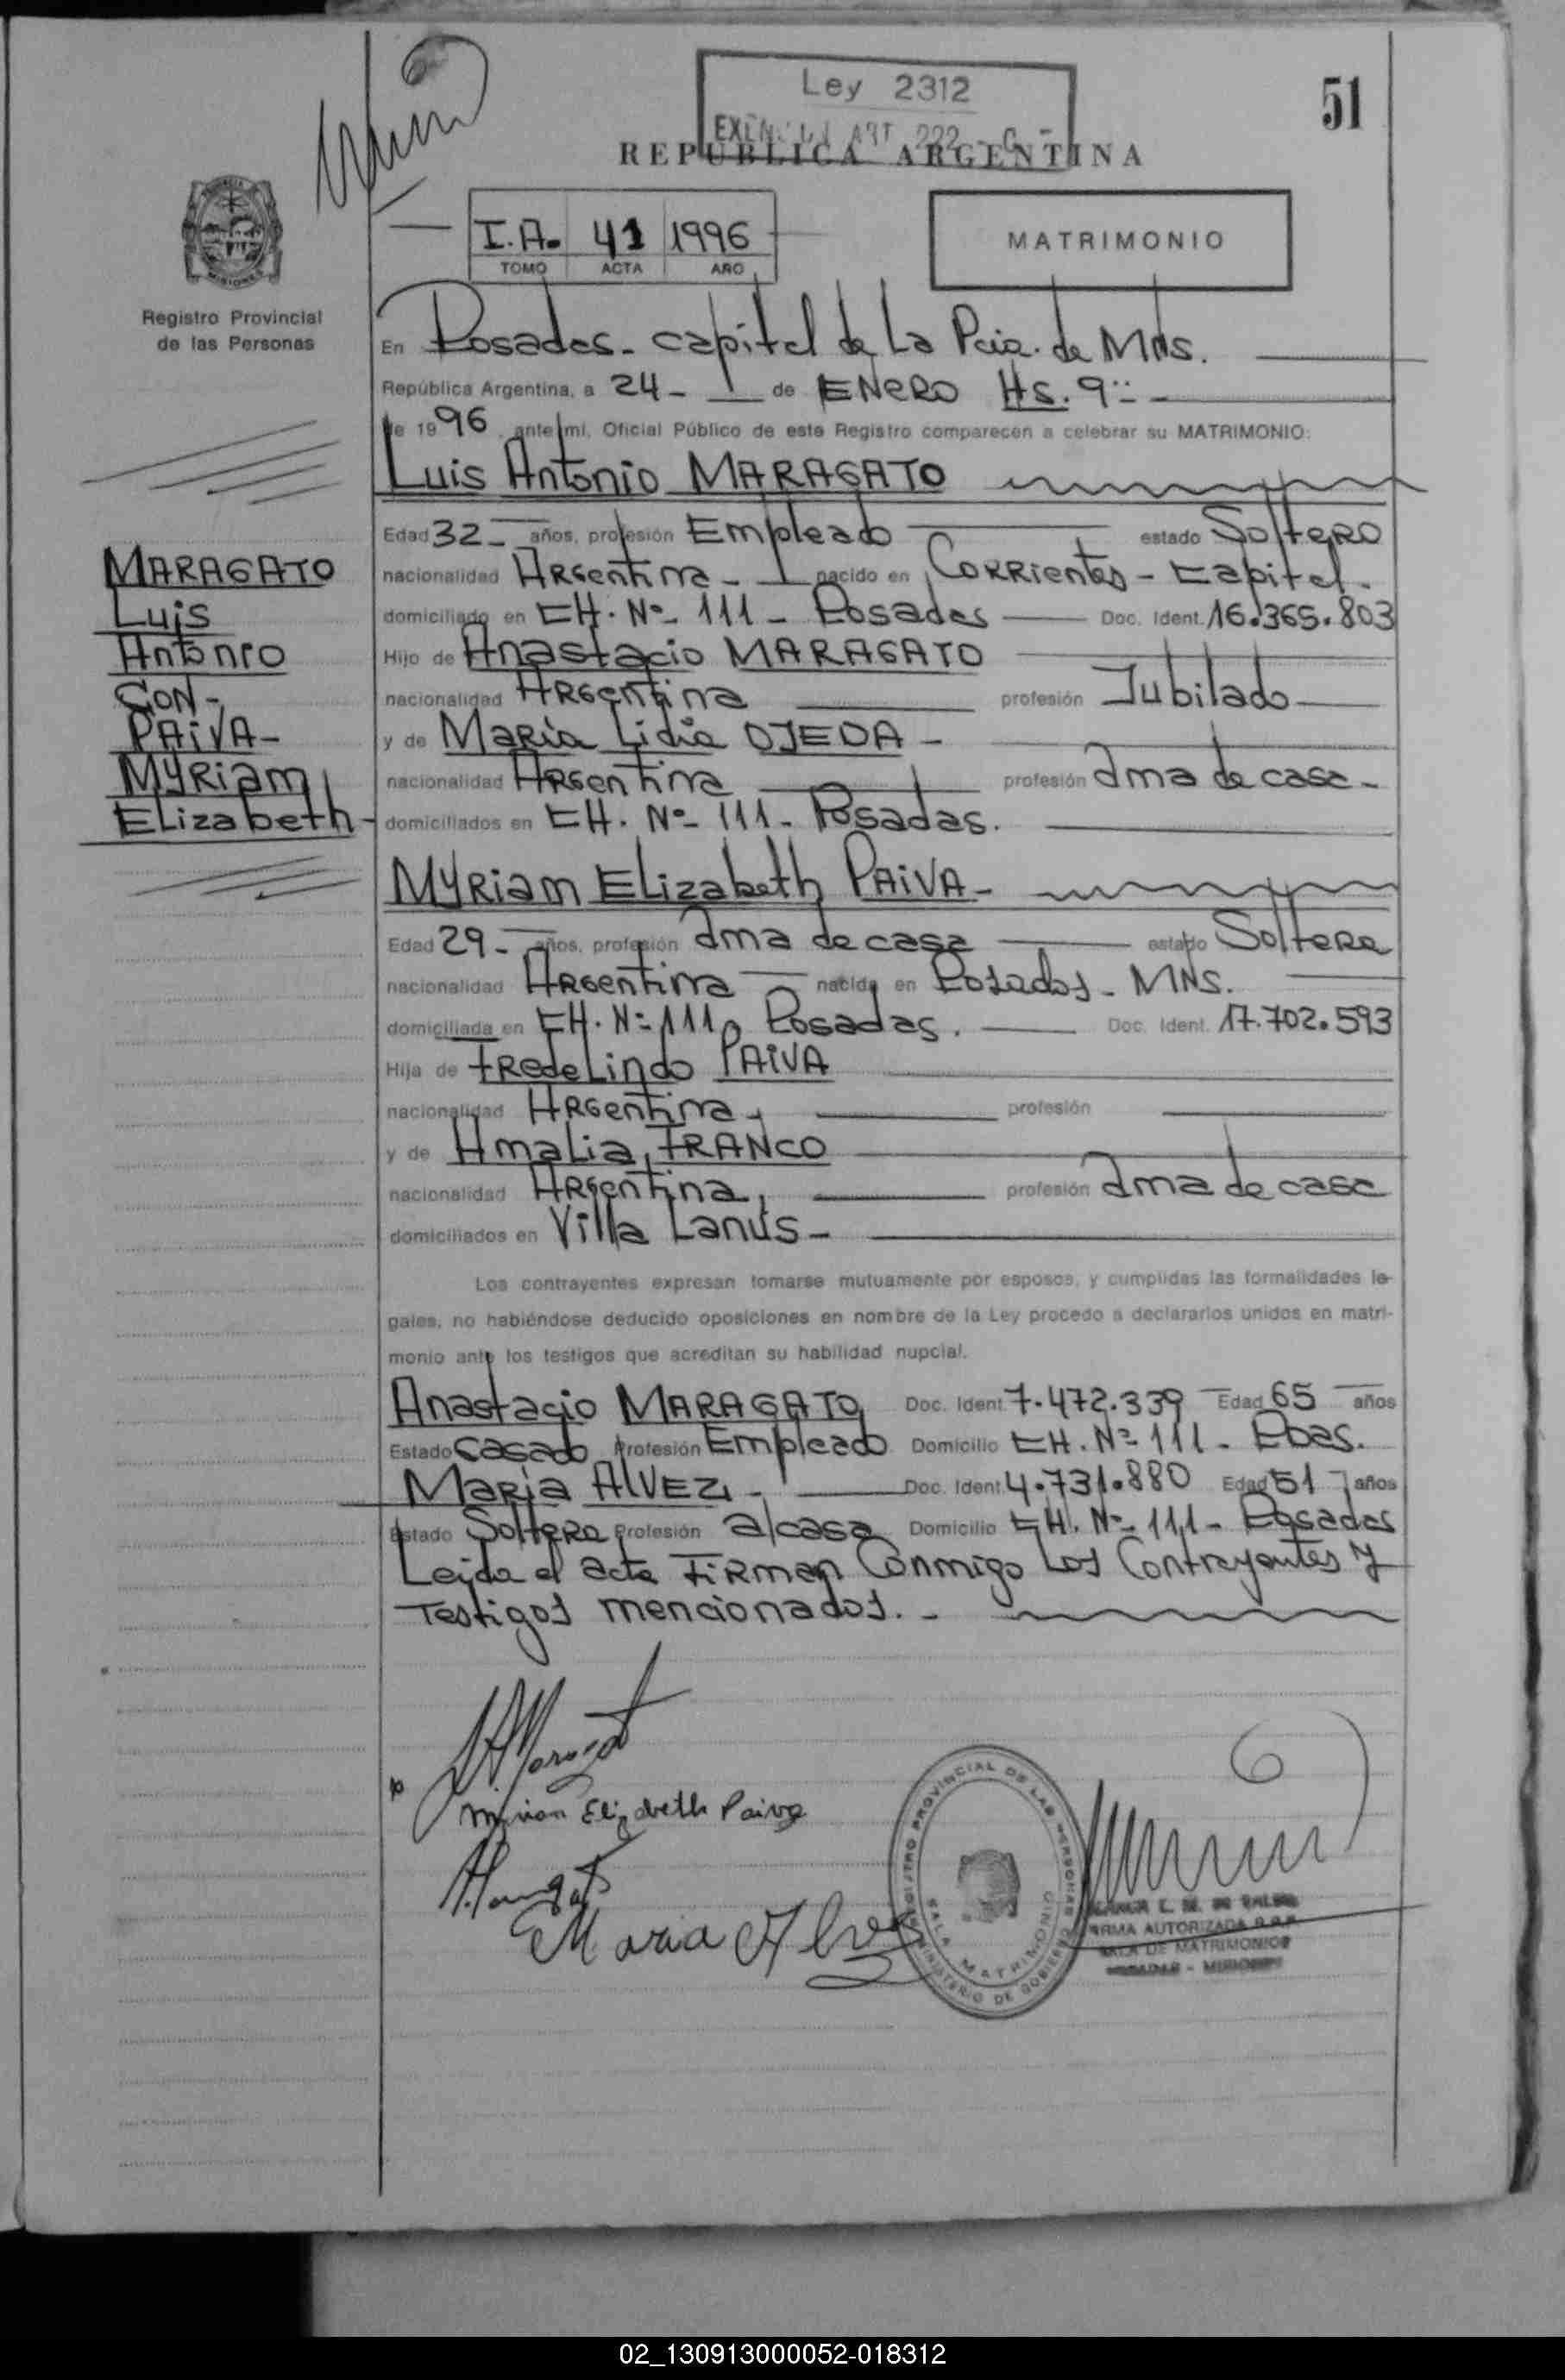 Ley 2312
51
ART 222
REPUBLICA ARGENTINA
I.A. 41 1996
TOMO ACTA AÑO
MATRIMONIO
Registro Provincial
de las Personas
En Posadas - capital de La Pcia. de Mns.
República Argentina, a 24 - de ENERO Hs. 9
de 1996 ante mí, Oficial Público de este Registro comparecen a celebrar su MATRIMONIO:
Luis Antonio MARAGATO
MARAGATO
Luis
Antonio
CON -
PAIVA -
MYRiam
Elizabeth -
Edad 32 - años, profesión Empleado estado Soltero
nacionalidad Argentina - nacido en Corrientes - Capital.
domiciliado en CH. Nº 111 - Posadas Doc. Ident. 16.365.803
Hijo de Anastacio MARAGATO
nacionalidad Argentina profesión Jubilado
y de María Lidia OJEDA -
nacionalidad Argentina profesión ama de casa -
domiciliados en CH. Nº 111 - Posadas.
MYRiam Elizabeth PAIVA -
Edad 29 - años, profesión ama de casa estado Soltera
nacionalidad Argentina nacida en Posadas - MNS.
domiciliada en CH. Nº 111 Posadas. Doc. Ident. 17.702.593
Hija de FRedeLindo PAIVA
nacionalidad Argentina profesión
y de Amalia FRANCO
nacionalidad Argentina, profesión ama de casa
domiciliados en Villa Lanús -
Los contrayentes expresan tomarse mutuamente por esposos, y cumplidas las formalidades le-
gales, no habiéndose deducido oposiciones en nombre de la Ley procedo a declararlos unidos en matri-
monio ante los testigos que acreditan su habilidad nupcial.
Anastacio MARAGATO Doc. Ident. 7.472.339 Edad 65 años
Estado Casado Profesión Empleado Domicilio CH. Nº 111 - Pdas.
María ALVEZ - Doc. Ident. 4.731.880 Edad 51 años
Estado Soltera Profesión a/casa Domicilio CH. Nº 111 - Posadas
Leída el acta FiRman Conmigo Los Contrayentes y
Testigos mencionados. -
Mirian Elizabeth Paiva
Maria Alvez
REGISTRO PROVINCIAL DE LAS PERSONAS
SALA MATRIMONIO
MINISTERIO DE GOBIERNO
FIRMA AUTORIZADA R.P.P.
SALA DE MATRIMONIOS
POSADAS - MISIONES
02_130913000052-018312